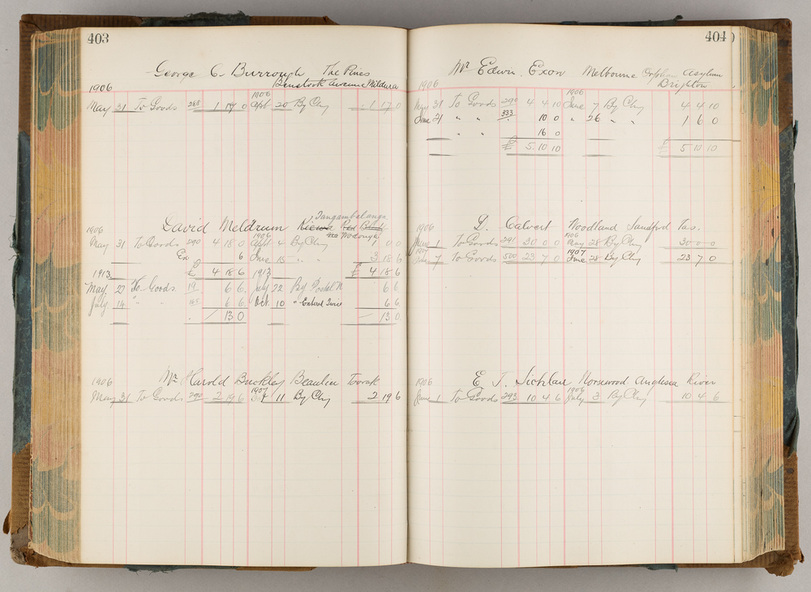 403
George C. Burrough The Pines
1906 Benetook avenue Mildura
1906
May 31 To Goods 1 17 0 Sept 20 By Chq 1 17 0
Tangambalanga
David Meldrum Kiewa
1906 1906
May 31 To Goods 290 4 18 0 Sept 4 By Chq 1 0 0
Ex 6 June 15 " " 3 18 6
£ 4 18 6 £ 4 18 6
1913 1913
May 27 To Goods 6 6 July 22 By Postal N 6 6
July 14 " " 6 6 Oct 10 " 6 6
13 0 13 0
1906 Mr Harold Buckley Beaulieu Toorak
May 31 To Goods 290 2 19 6 11 By Chq 2 19 6
404
Mr Edwin Exon Melbourne Orphan Asylum
1906 Brighton
1906
May 31 To Goods 290 4 4 10 June 7 By Chq 4 4 10
June 21 " " 333 10 0 " 26 " " 1 6 0
" " 16 0
£ 5 10 10 £ 5 10 10
1906 D. Calvert Woodland Sandford Tas.
1906
June 1 To Goods 291 30 0 0 May 28 By Chq 30 0 0
1907
7 To Goods 23 7 0 June 28 By Chq 23 7 0
1906 E. J. Norwood Anglesea River
1906
June 1 To Goods 292 10 4 6 July 3 By Chq 10 4 6